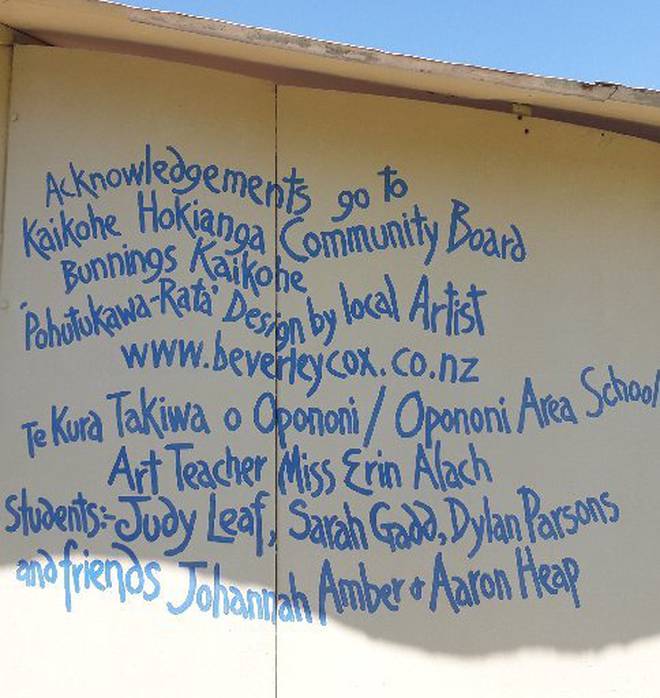 Acknowledgements go to
Kaikohe Hokianga Community Board
Bunnings Kaikohe
'Pohutukawa-Rata' Design by local Artist
www.beverleycox.co.nz
Te Kura Takiwa o Opononi / Opononi Area School
Art Teacher Miss Erin Alach
Students:- Judy Leaf, Sarah Gadd, Dylan Parsons
and friends Johannah Amber & Aaron Heap